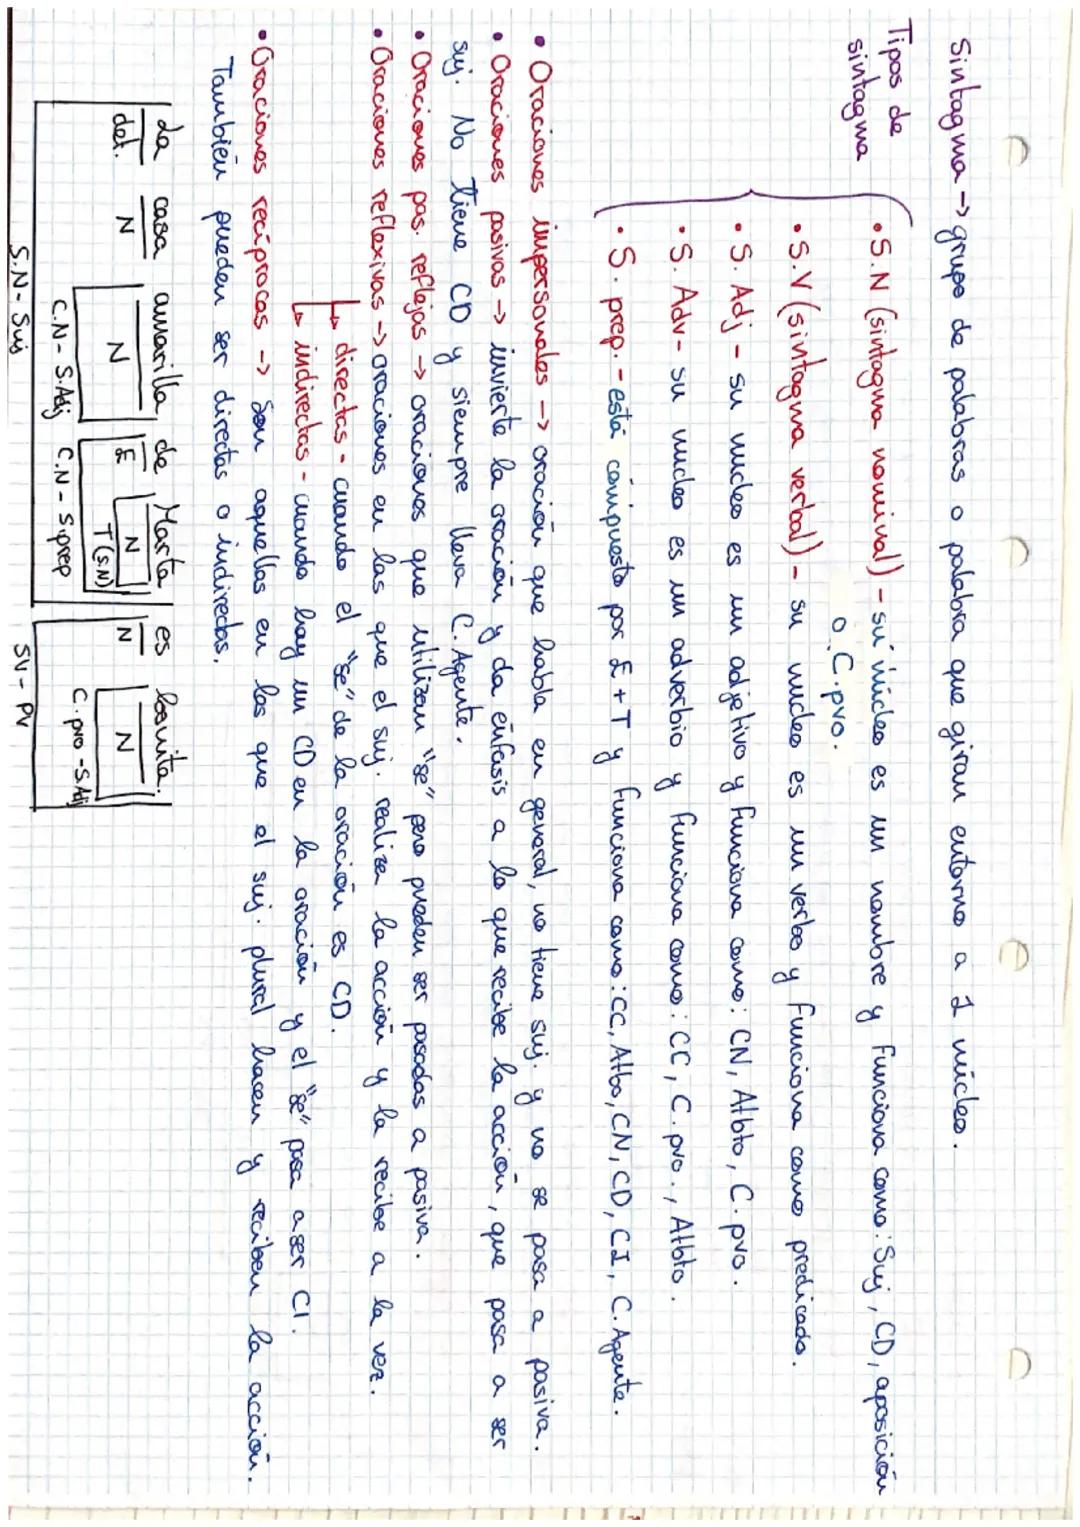 Sintagma → grupo de palabras o palabra que giran entorno a 1 núcleo.
Tipos de
sintagma
• S.N (sintagma nominal) - su núcleo es un nombre y funciona como: Suj, CD, aposición
o C.pvo.
• S.V (sintagma verbal) - su nucleo es un verbo y funciona como predicado.
• S. Adj - su nucleo es un adjetivo y funciona como: CN, Atbto, C.pvo.
• S. Adv - su nucleo es un adverbio y funciona como: CC, C.pvo., Atbto.
• S. prep. - está compuesto por E+T y funciona como: CC, Atbo, CN, CD, CI, C.Agente.
• Oraciones impersonales → oración que habla en general, no tiene suj. y no se pasa a pasiva.
• Oraciones pasivas → invierte la oración y da énfasis a lo que recibe la acción, que pasa a ser
suj. No tiene CD y siempre lleva C.Agente.
• Oraciones pas. reflejas → oraciones que utilizan "se" pero pueden ser pasadas a pasiva.
• Oraciones reflexivas → oraciones en las que el suj. realiza la acción y la recibe a la vez.
↳ directas - cuando el "se" de la oración es CD.
↳ indirectas - cuando hay un CD en la oración y el "se" pasa a ser CI.
• Oraciones recíprocas → Son aquellas en las que el suj. plural hacen y reciben la acción.
También pueden ser directas o indirectas.
La casa amarilla de Marta es bonita.
det. N N E N N N
T(S.N)
C.N - S.Adj C.N - S.prep C.pvo - S.Adj
S.N - Suj SV - PV